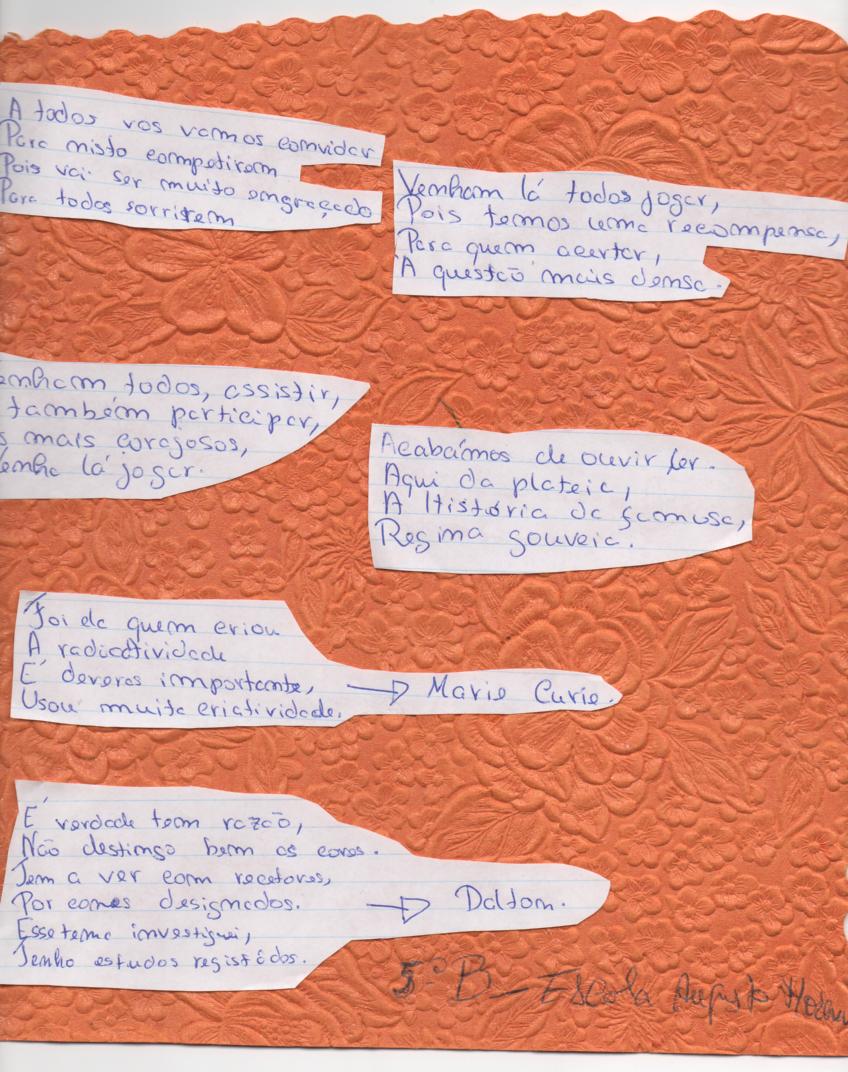 A todos vos vamos convidar
Para nisto competirem
Pois vai ser muito engraçado
Para todos sorrirem
Venham lá todos jogar,
Pois temos uma recompensa,
Para quem acertar,
A questão mais densa.
enham todos, assistir,
também participar,
s mais corajosos,
enha lá jogar.
Acabámos de ouvir ler.
Aqui da plateia,
A História da famosa,
Regina Gouveia.
Foi ela quem criou
A radioatividade
É deveras importante,
Usou muita criatividade. → Marie Curie.
É verdade tem razão,
Não destingo bem as cores.
Tem a ver com recetores,
Por cones designados. → Daltom.
Esse tema investiguei,
Tenho estudos registádos.
5º B - Escola Augusto